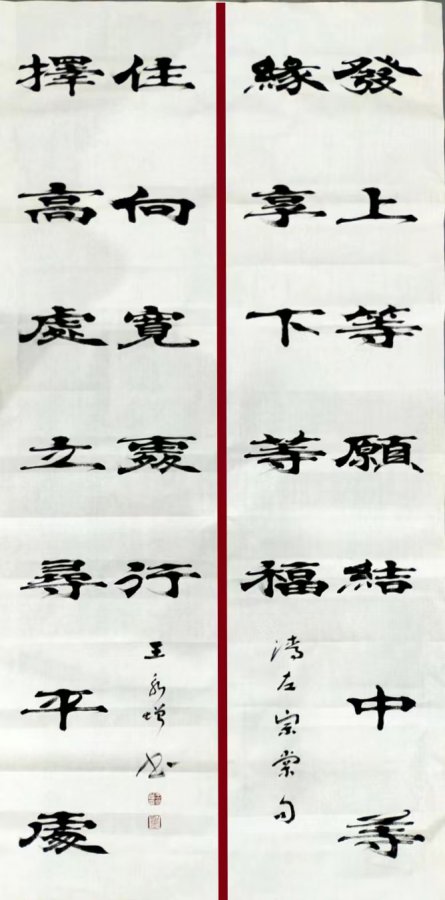 發上等願結中等
緣享下等福
清左宗棠句
擇高處立尋平處
住向寬處行
王永增书